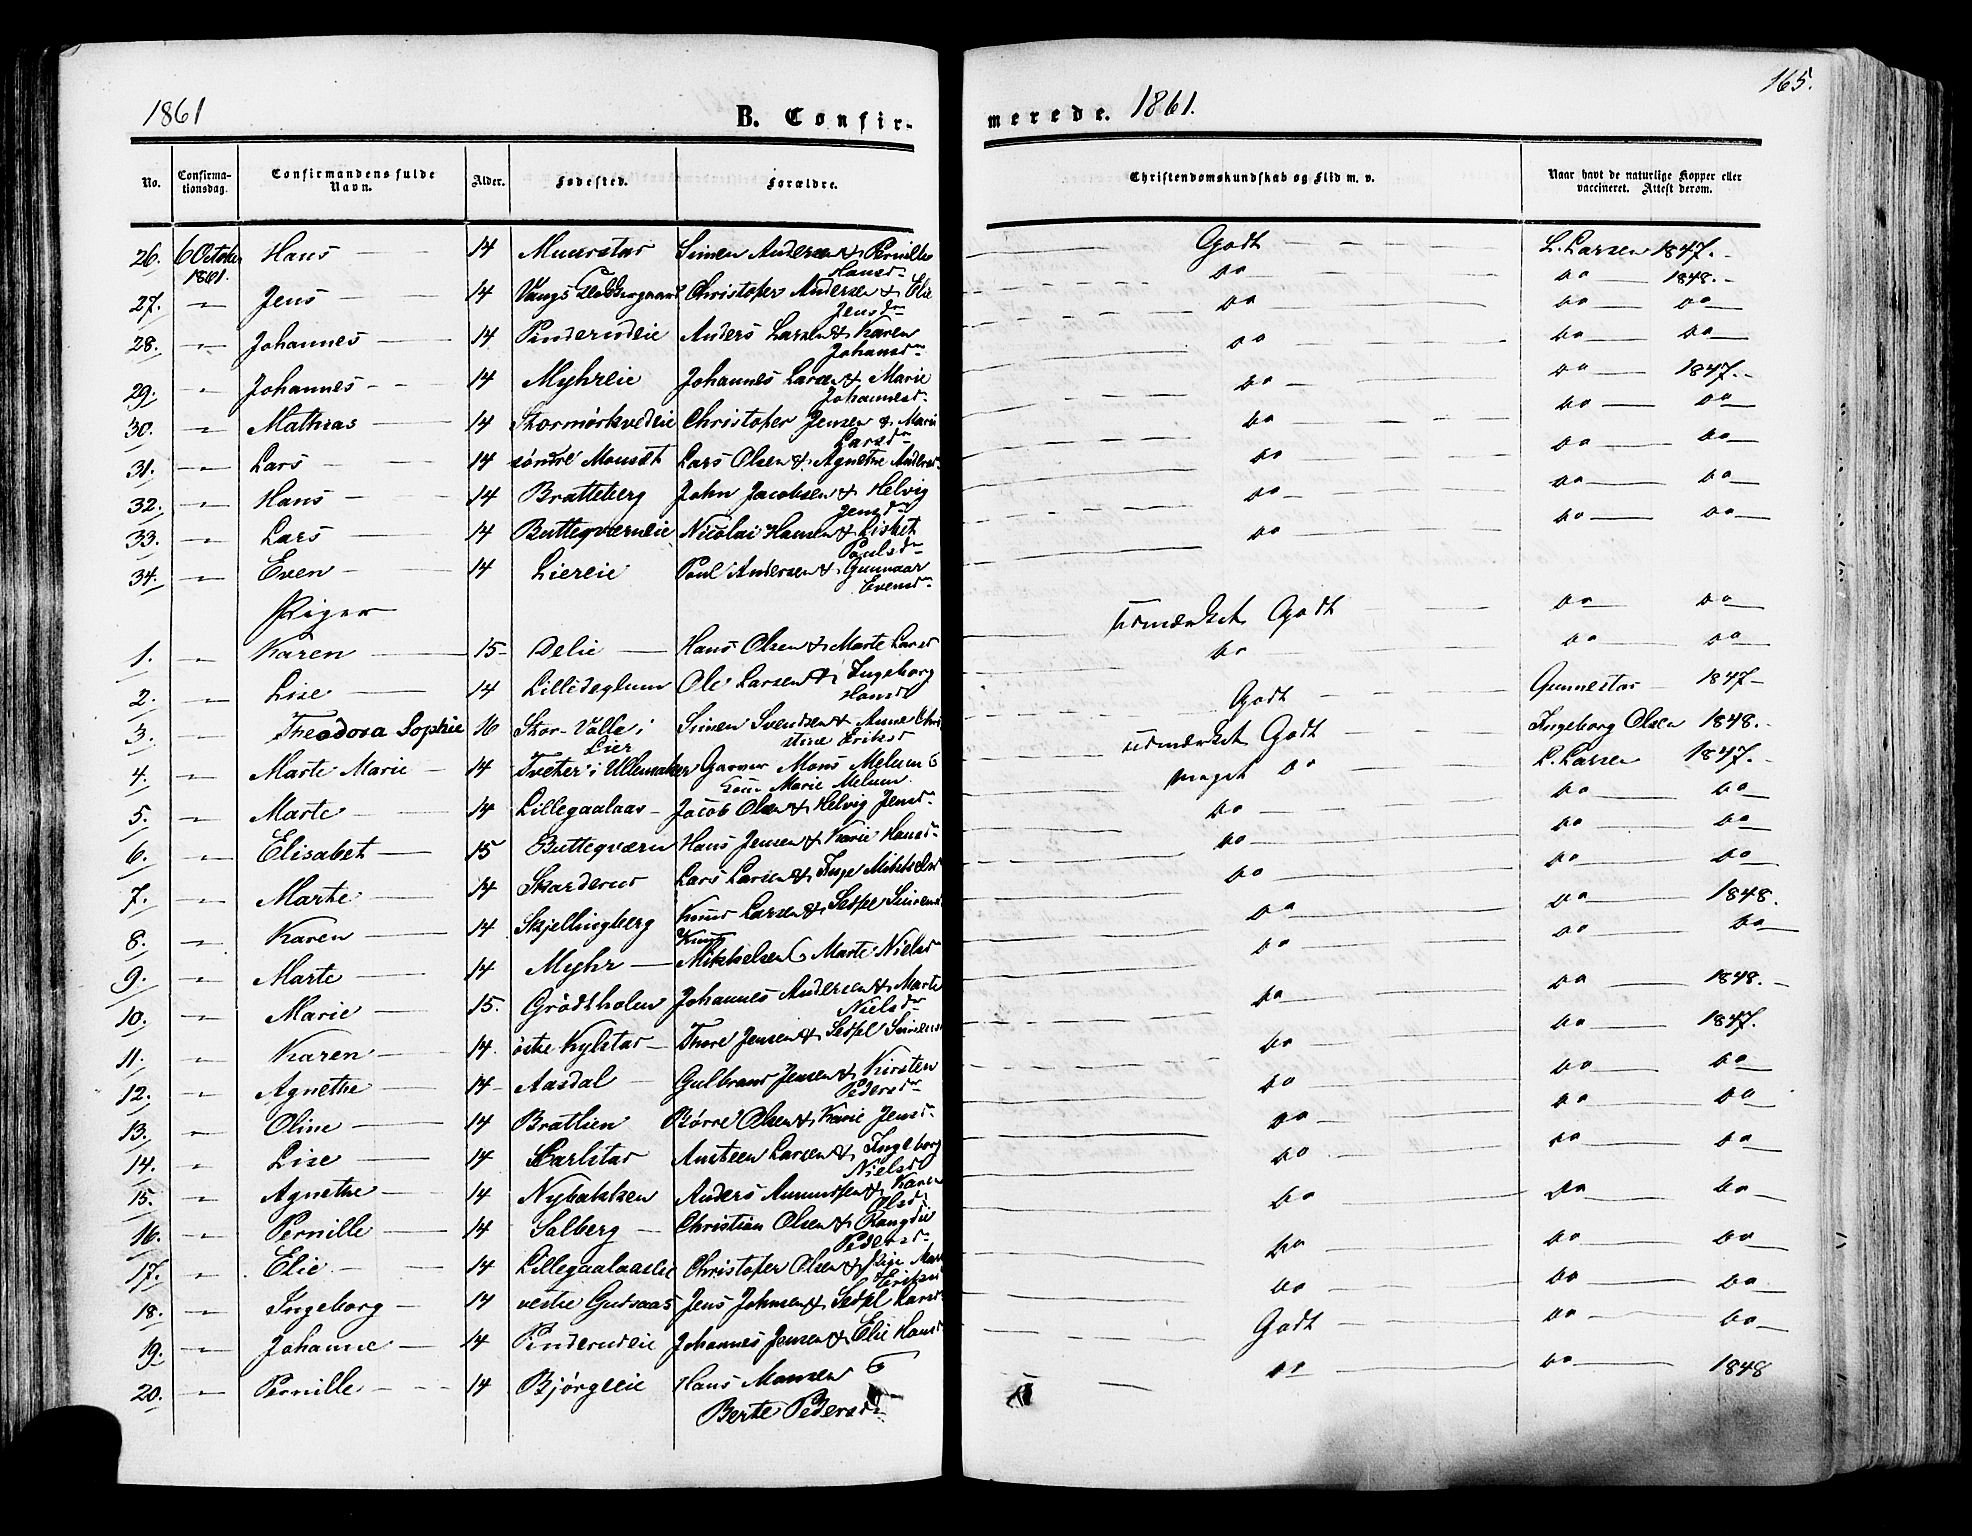 1861
B. Confir-
No. Confirma-tionsdag. Confirmandens fulde Navn. Alder. Fødested. Forældre.
26. 6 October 1861. Hans 14 Simen Andersen & Pernille Hansd
27. " Jens 14 Christopher Andersen & Elie Jensd
28. " Johannes 14 Pinderudeie Anders Larsen & Karen Johansd
29. " Johannes 14 Myhreie Johannes Larsen & Marie Johannesd
30. " Mathias 14 Stormørkvedeie Christopher Jensen & Mari Larsd
31. " Lars 14 søndre Monset Lars Olsen & Agnethe Andersd
32. " Hans 14 Bratteberg John Jacobsen & Helvig Jensd
33. " Lars 14 Butteqværneie Nicolai Hansen & Lisbet Paulsd
34. " Even 14 Liereie Poul Andersen & Gunnaar Evensd
Piger
1. " Karen 15 Delie Hans Olsen & Marte Larsd
2. " Lise 14 Lilledeglum Ole Larsen & Ingeborg Hansd
3. " Theodora Sophie 16 Stor-Valle i Lier Simen Svendsen & Anne Christine Eriksd
4. " Marte Marie 14 Tveter i Ullensaker Mons Melum & Marie Melum
5. " Marte 14 Lillegaalaas Jacob Olsen & Helvig Jensd
6. " Elisabet 15 Butteqværn Hans Jensen & Karie Hansd
7. " Marthe 14 Skarderud Lars Larsen & Inge Mikkelsd
8. " Karen 14 Skjellingberg Knud Larsen & Sidsel Simensd
9. " Marte 14 Myhr Knud Mikkelsen & Marte Nielsd
10. " Marie 15. Grødsholen Johannes Andersen & Marte Nielsd
11. " Karen 14. østre Kylstad Thore Jensen & Sidsel Simensd
12. " Agnethe 14 Aasdal Gulbrand Jensen & Kirsten Pedersd
13. " Oline 14 Bratlien Børre Olsen & Karie Jensd
14. " Lise 14 Karlstad Amteen Larsen & Ingeborg Nielsd
15. " Agnethe 14 Nybakken Anders Amundsen & Karen Olsd
16. " Pernille 14 Solberg Christian Olsen & Rangdie Pedersd
17. " Elie 14 Lillegaalaaseie Christopher Olsen & Eriksd
18. " Ingeborg 14 vestre Gudsaas Jens Johnsen & Sidsel Larsd
19. " Johanne 14 Pinderudeie Johannes Jensen & Elie Hansd
20. " Pernille 14 Bjørgeeie Hans Monsen & Berte Pedersd
165.
merede. 1861.
Christendomskundskab og Flid m. v. Naar havt de naturlige Kopper eller vaccineret. Attest derom.
Godt L. Larsen 1847.
do do 1848.
do do do
do do do
do do 1847.
do do do
do do do
do do do
do do do
Udmærket Godt do do
do do do
Godt Gunnestad 1847
Udmærket Godt Ingeborg Olsen 1848.
meget do L. Larsen 1847.
do do do
do do do
do do do
do do 1848.
do do do
do do 1848.
do do 1847.
do do do
do do do
do do do
do do do
do do do
do do do
Godt do do
do do 1848